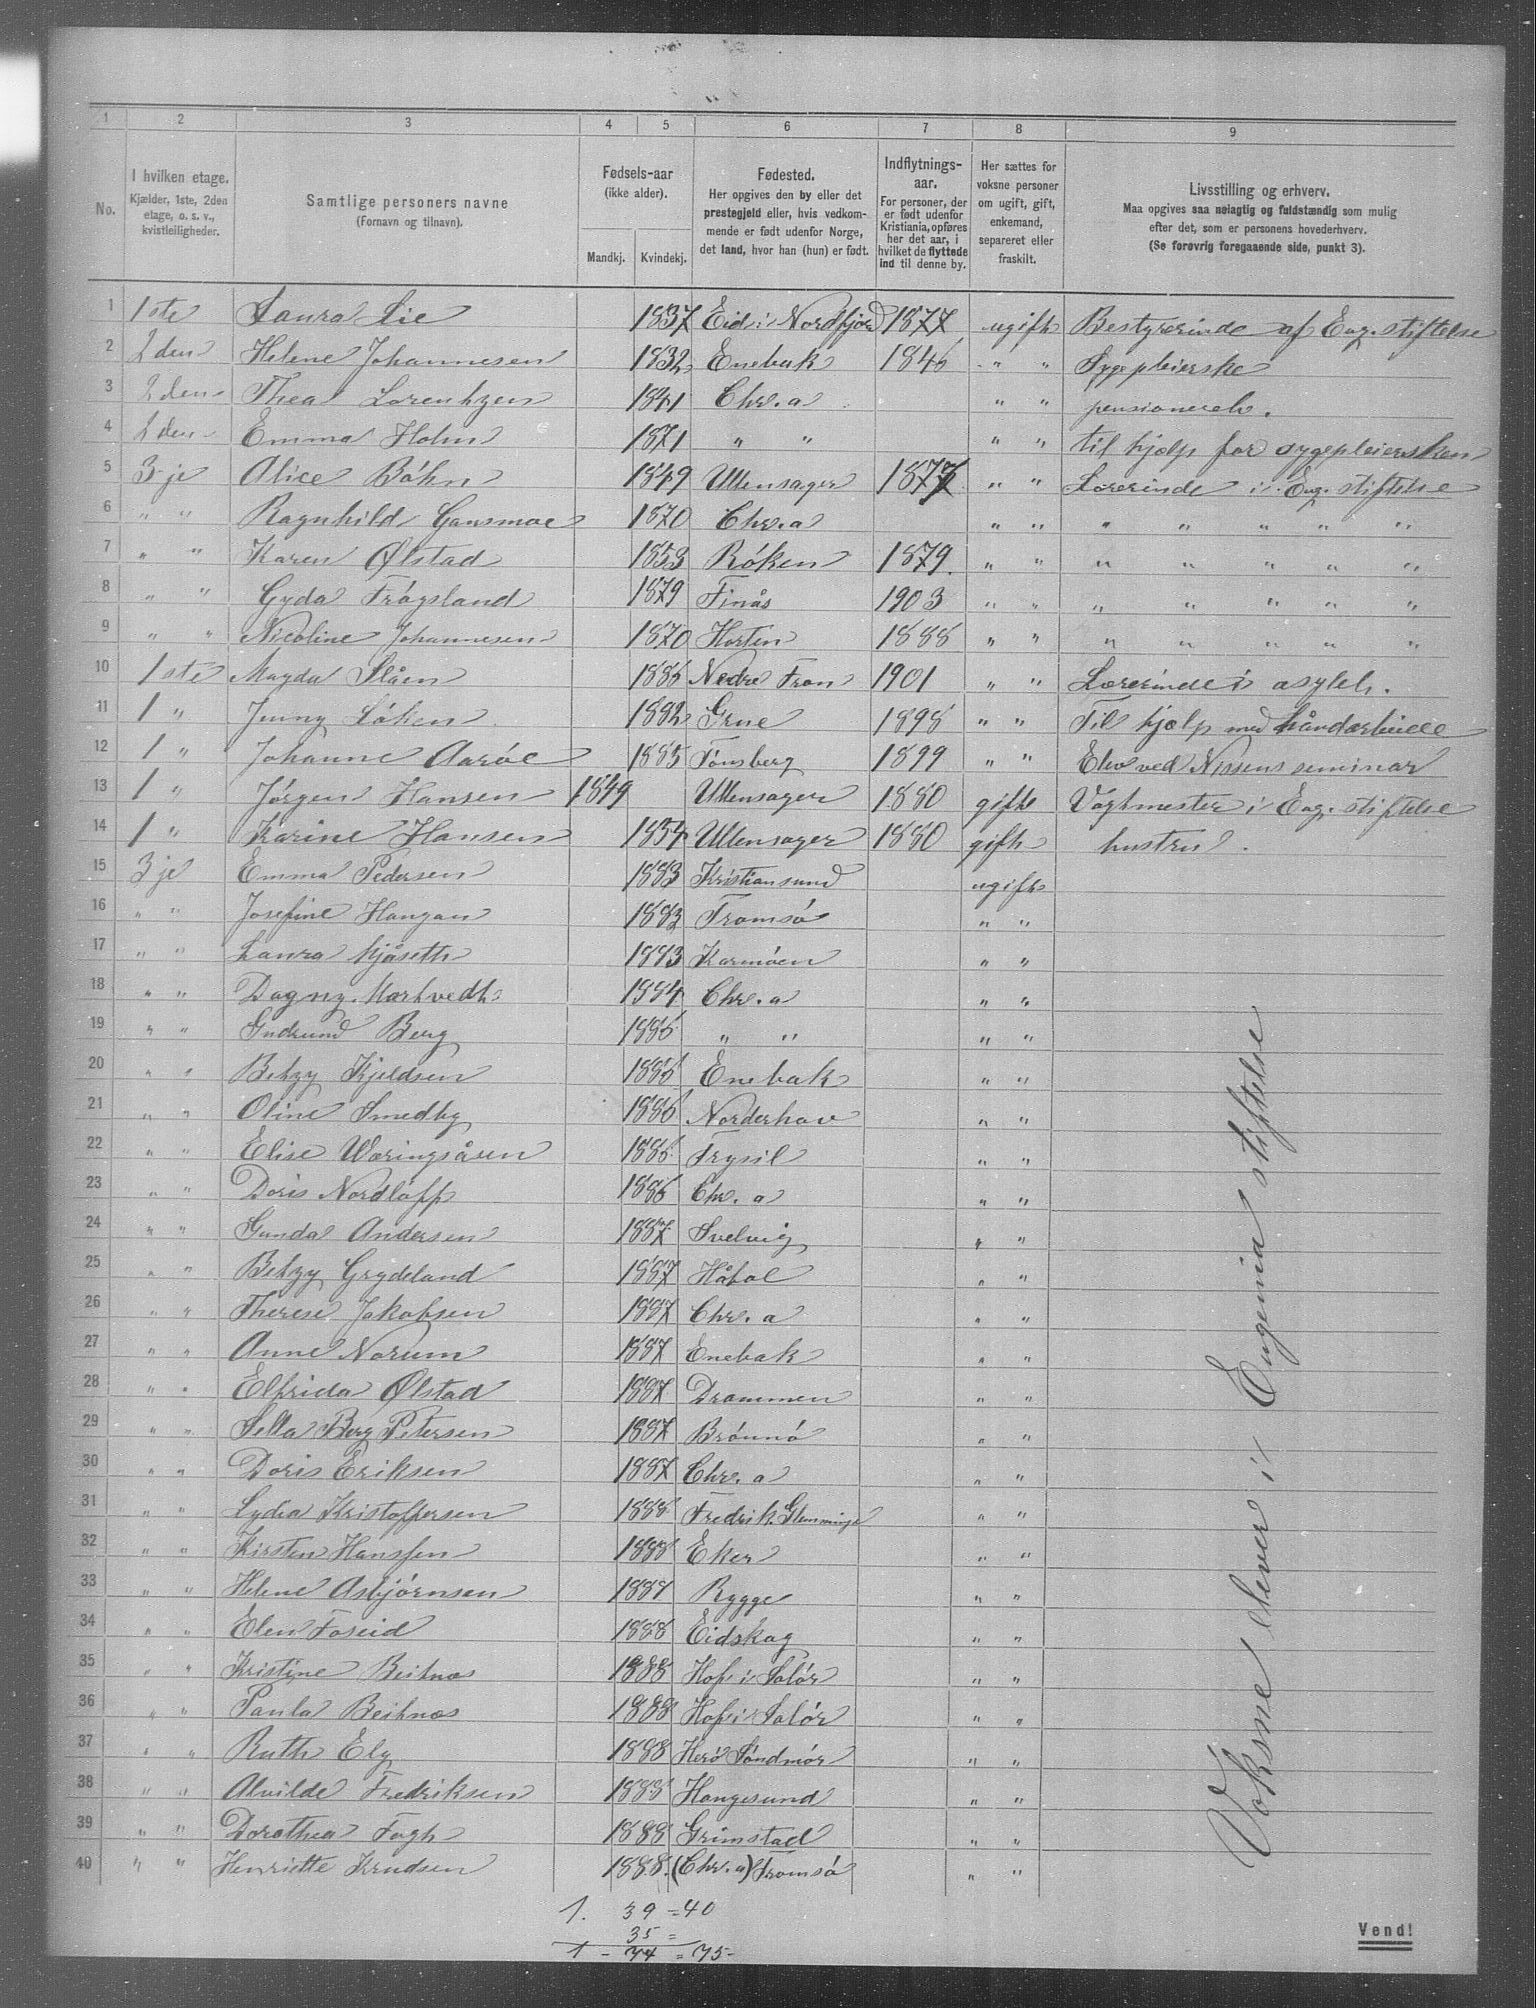 1 2 3 4 5 6 7 8 9
No.
I hvilken etage.
Kjælder, 1ste, 2den
etage, o. s. v.,
kvistleiligheder.
Samtlige personers navne
(Fornavn og tilnavn).
Fødsels-aar
(ikke alder).
Mandkj. Kvindekj.
Fødested.
Her opgives den by eller det
prestegjeld eller, hvis vedkom-
mende er født udenfor Norge,
det land, hvor han (hun) er født.
Indflytnings-
aar.
For personer, der
er født udenfor
Kristiania, opføres
her det aar, i
hvilket de flyttede
ind til denne by.
Her sættes for
voksne personer
om ugift, gift,
enkemand,
separeret eller
fraskilt.
Livsstilling og erhverv.
Maa opgives saa nøiagtig og fuldstændig som mulig
efter det, som er personens hovederhverv.
(Se forøvrig foregaaende side, punkt 3).
1 1ste Laura Lie 1837 Eid i Nordfjord 1877 ugift Bestyrerinde af Eug. stiftelse
2 2den Helene Johannesen 1832 Enebak 1846 " " Sygepleierske
3 2den Thea Lorentzen 1841 Chr.a " " pensioneret.
4 2den Emma Holm 1871 " " " " til hjælp for sygepleiersken
5 3-je Alice Bøhn 1849 Ullensager 1877 " " Lærerinde i Eug. stiftelse
6 " " Ragnhild Gansmoe 1870 Chr.a " " " " " " "
7 " " Karen Ølstad 1853 Røken 1879. " " " " " " "
8 " " Gyda Frøgsland 1879 Finås 1903 " " " " " " "
9 " " Nicoline Johannesen 1870 Horten 1888 " " " " " " "
10 1ste Magda Slåen 1885 Nedre Fron 1901 " " Lærerinde i asylet.
11 1 " Jenny Løken 1882 Grue 1898 " " Til hjælp med håndarbeide
12 1 " Johanne Aarøe 1885 Tønsberg 1899 " " Elev ved Nissens seminar
13 1 " Jørgen Hansen 1849 Ullensager 1880 gift Vagtmester i Eug. stiftelse
14 1 " Karine Hansen 1854 Ullensager 1880 gift hustru.
15 3je Emma Pedersen 1883 Kristiansund ugift
16 " " Josefine Haugan 1883 Tromsø " "
17 " " Laura Kjøseth 1883 Karmøen " "
18 " " Dagny Markvedt 1884 Chr.a " "
19 " " Gudrund Berg 1885 " " " "
20 " " Betzy Kjeldsen 1885 Enebak " "
21 " " Oline Smedby 1886 Norderhov " "
22 " " Elise Wæringsåsen 1886 Trysil " "
23 " " Doris Nordløff 1886 Chr.a " "
24 " " Gunda Andersen 1887 Svelvig " "
25 " " Betzy Grydeland 1887 Håbøl " "
26 " " Therese Jakobsen 1887 Chr.a " "
27 " " Anne Norum 1887 Enebak " "
28 " " Elfrida Ølstad 1887 Drammen " "
29 " " Sella Berg Petersen 1887 Brønnø " "
30 " " Doris Eriksen 1887 Chr.a " "
31 " " Lydia Kristoffersen 1888 Fredrik. Glemminge " "
32 " " Kirsten Hanssen 1888 Eker " "
33 " " Helene Asbjørnsen 1887 Rygge " "
34 " " Elen Foseid 1888 Eidskog " "
35 " " Kristine Beitnæs 1888 Hof i Solør " "
36 " " Paula Beitnæs 1888 Hof i Solør " "
37 " " Ruth Elg 1888 Herø Søndmør " "
38 " " Alvilde Fredriksen 1888 Haugesund " "
39 " " Dorothea Fogh 1888 Grimstad " "
40 " " Henriette Knudsen 1888. (Chr.a) Tromsø " "
Voksne elever i Eugenia stiftelse
1. 39 = 40
35 =
1 - 74 = 75-
Vend!